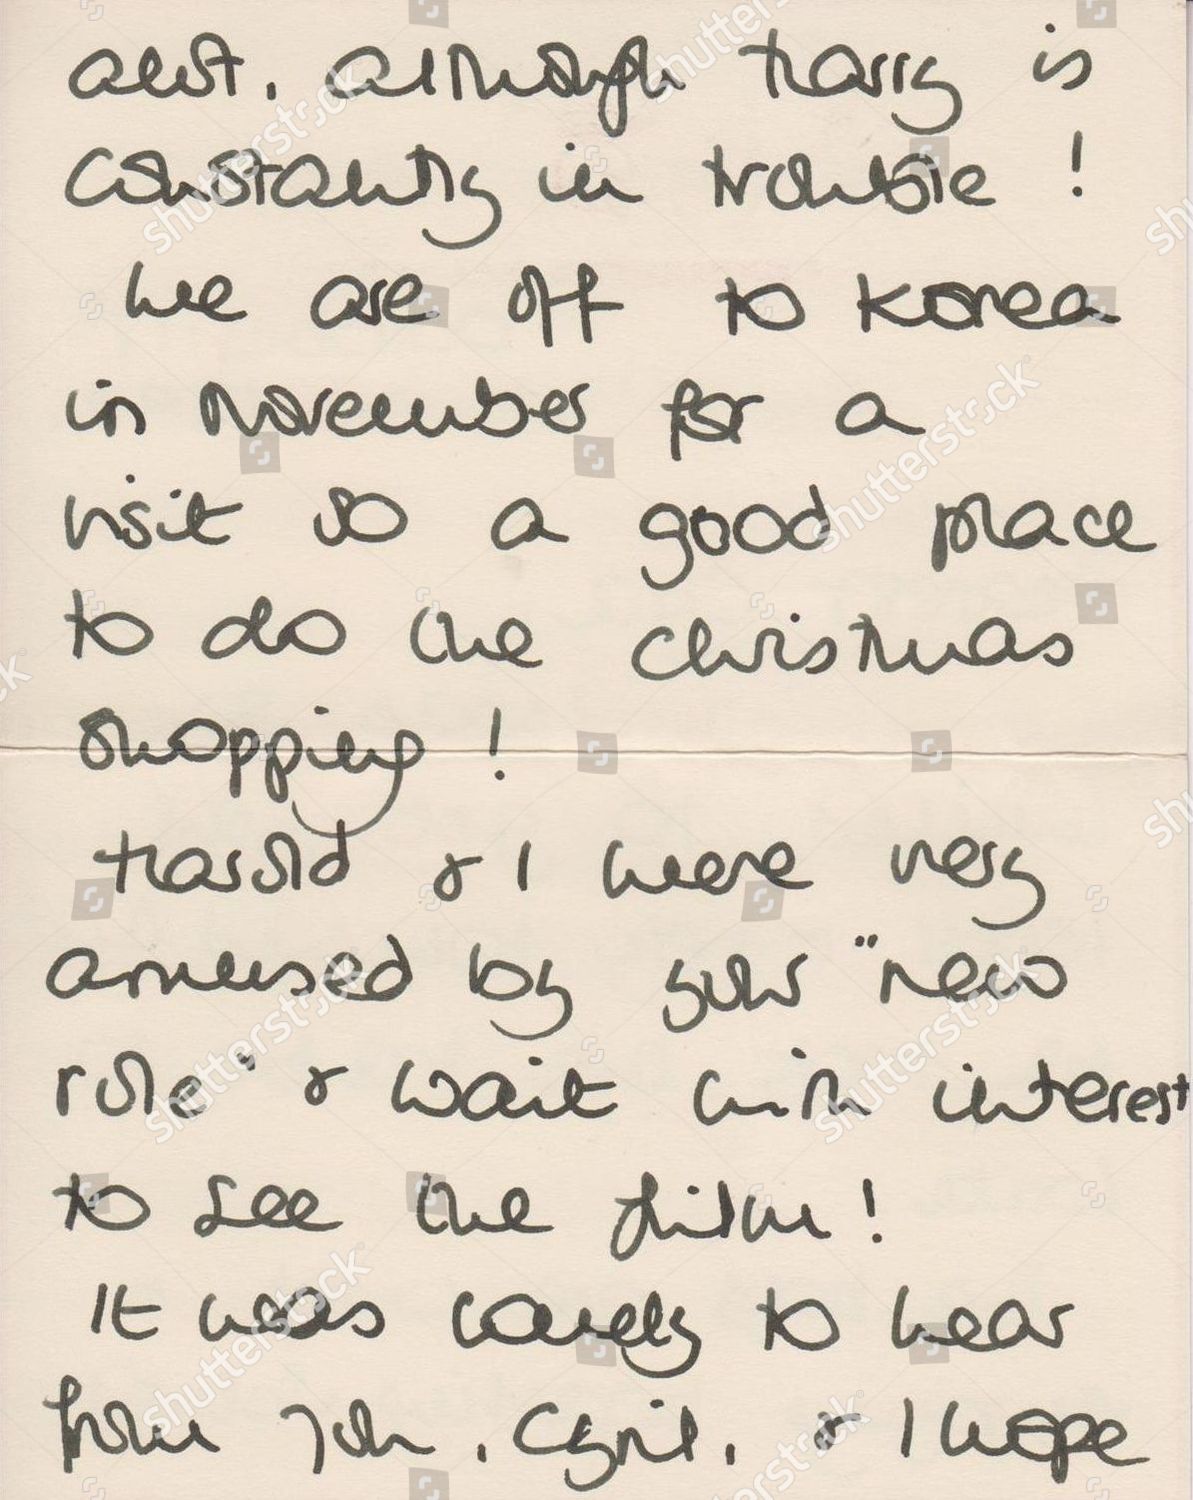 alot, although Harry is
constantly in trouble !
We are off to Korea
in November for a
visit so a good place
to do the Christmas
shopping !
Harold & I were very
amused by your "new
role" & wait with interest
to see the film !
It was lovely to hear
from you, Cyril, & I hope